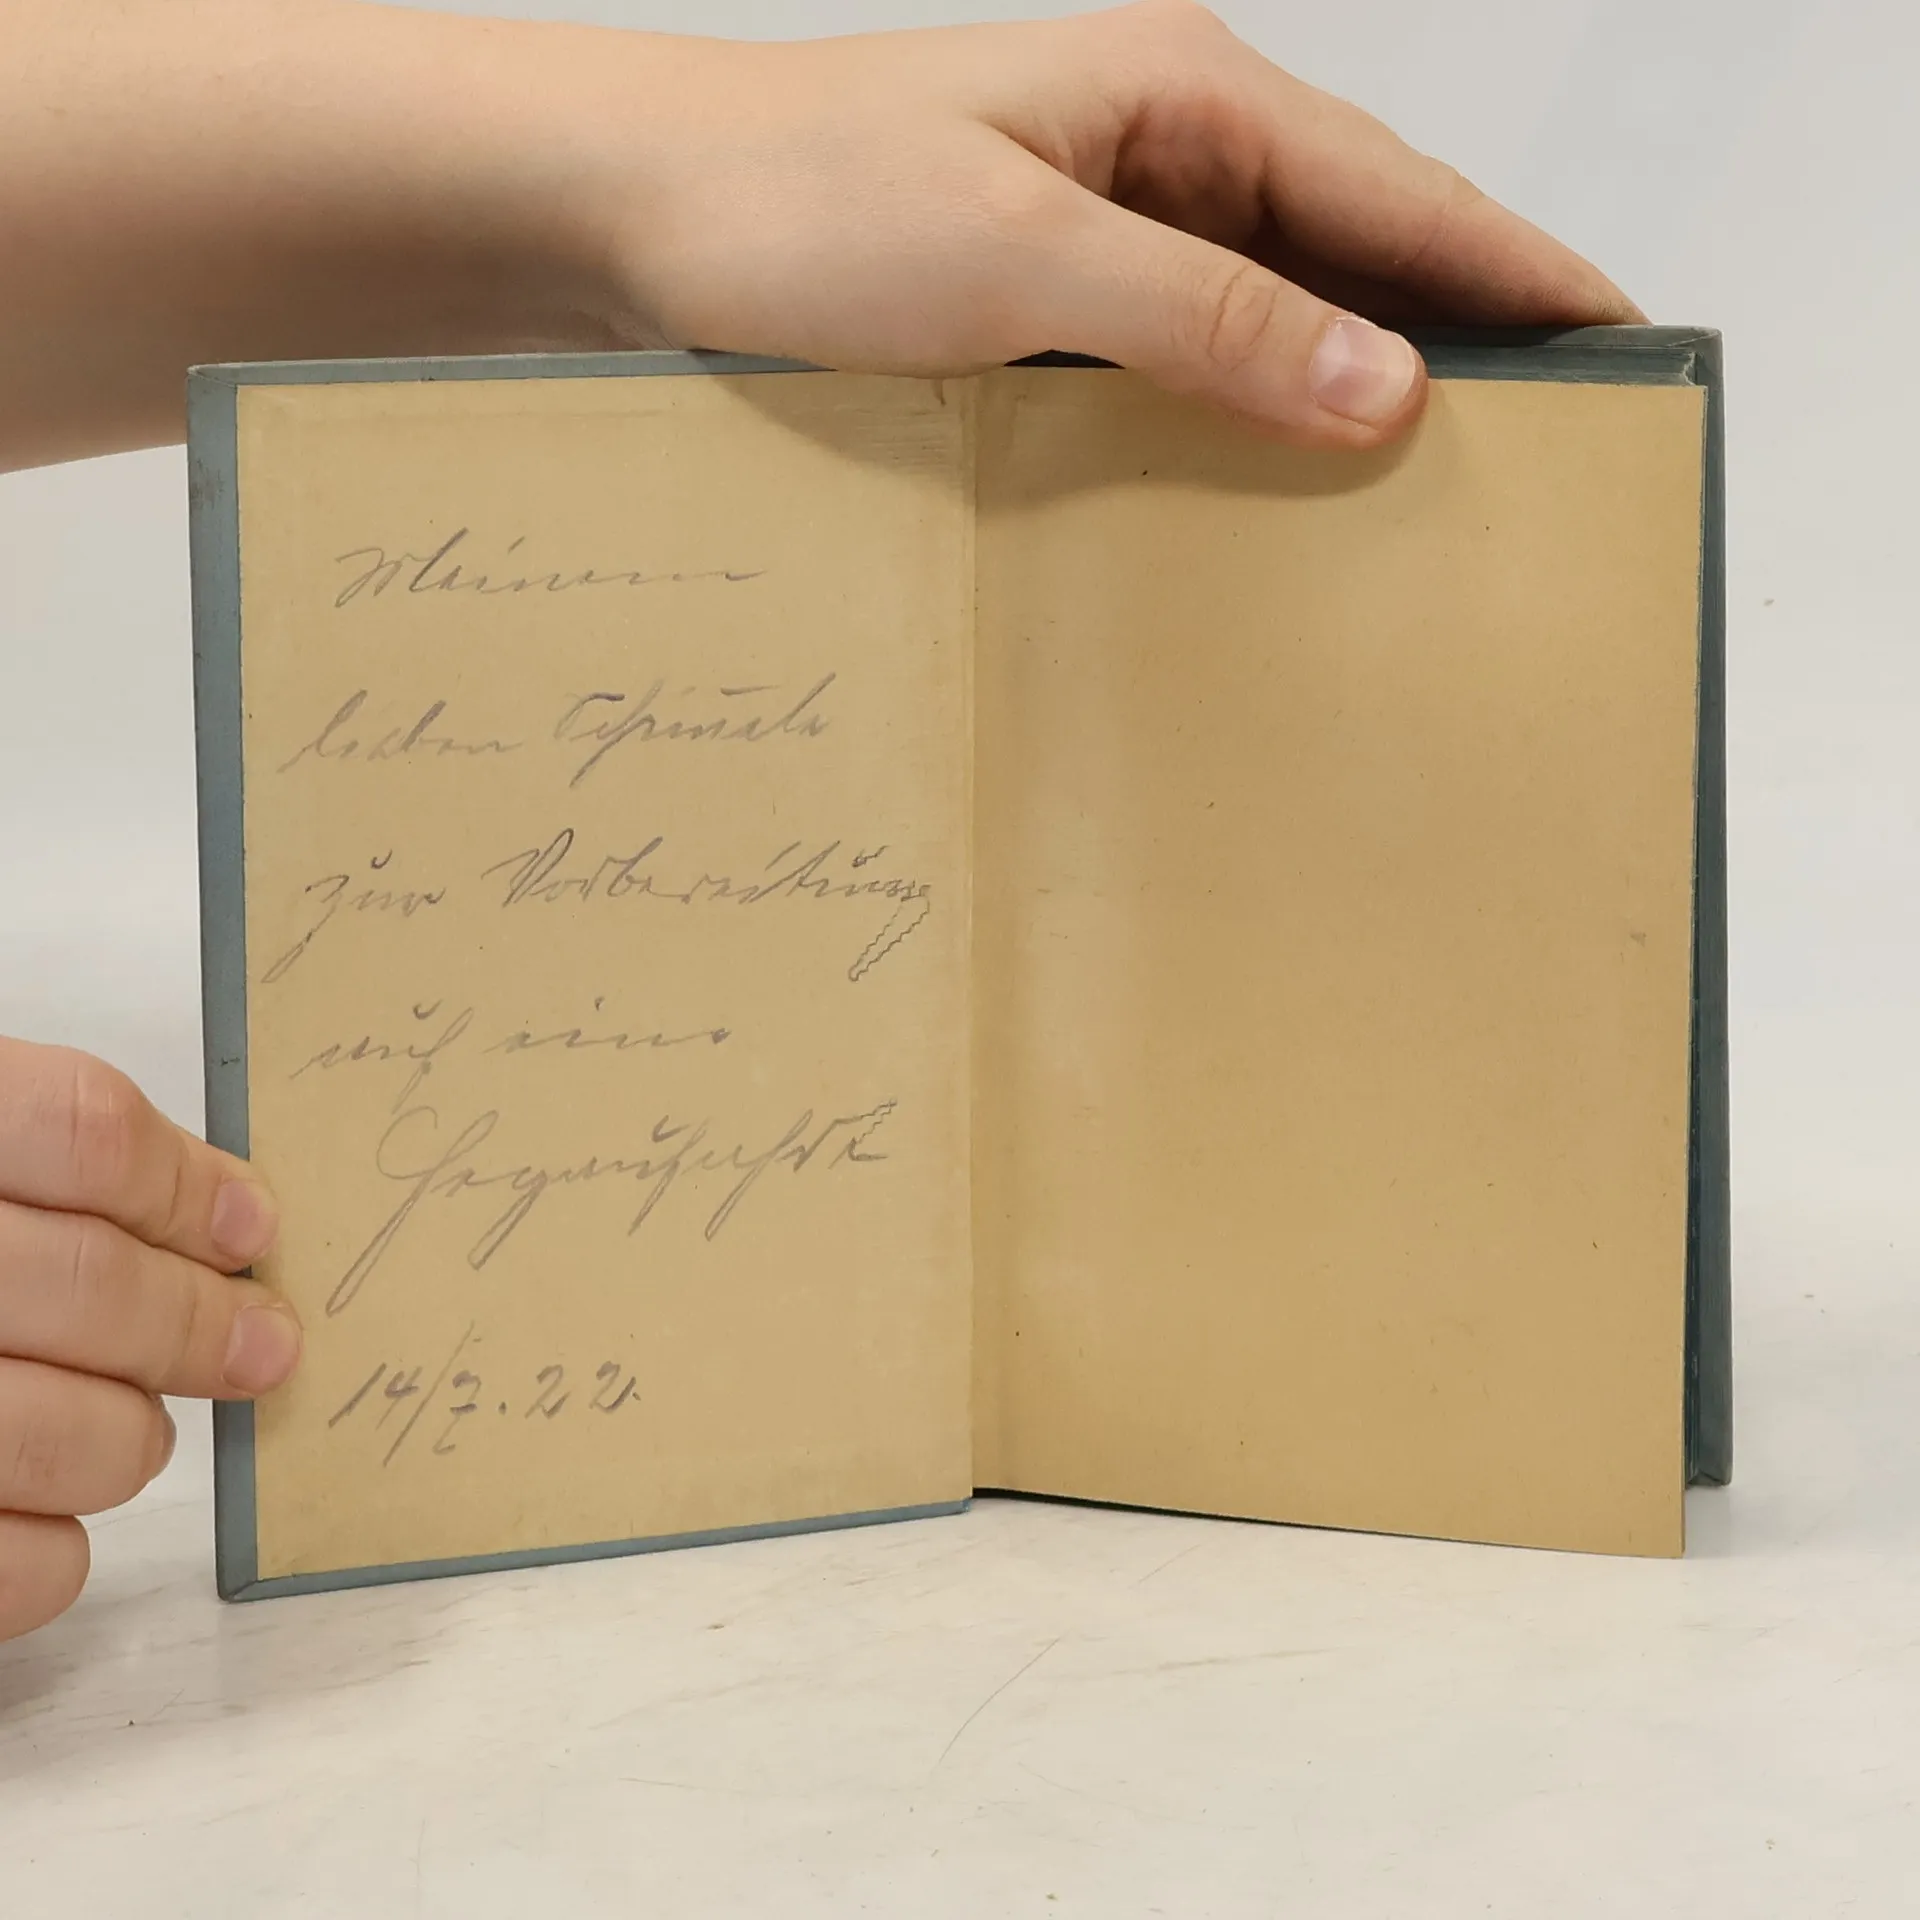 Meinem
lieben
zur Vorbereitung
auf eine
Hegaufahrt
14/7.22.